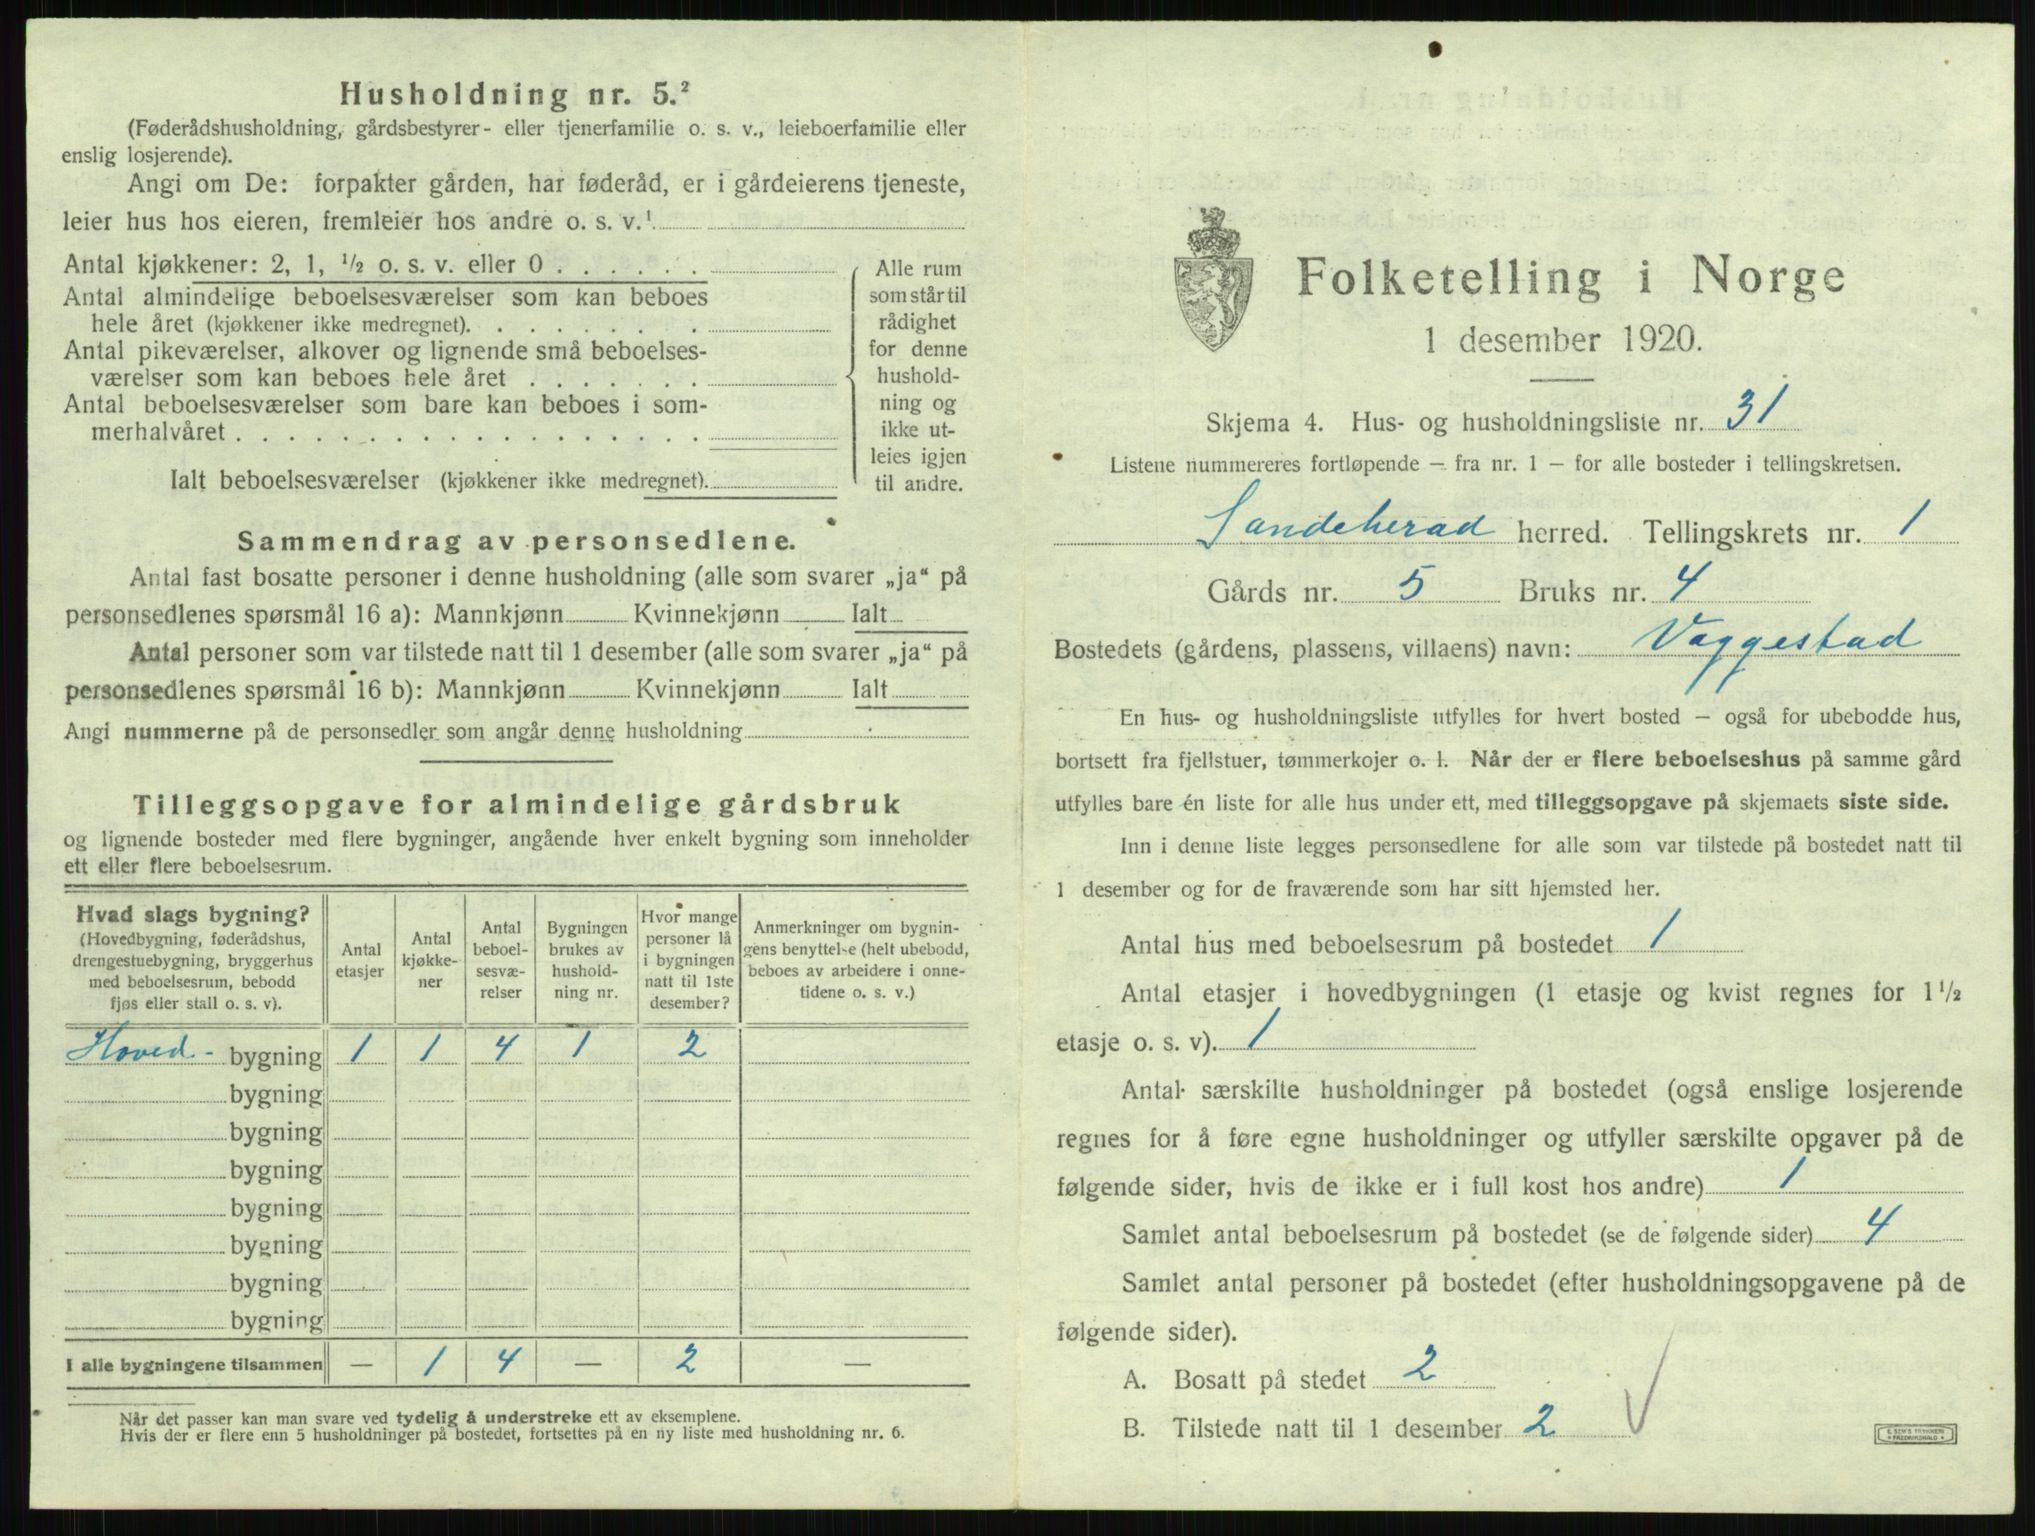 Husholdning nr. 5.²
(Føderådshusholdning, gårdsbestyrer- eller tjenerfamilie o. s. v., leieboerfamilie eller
enslig losjerende).
Angi om De: forpakter gården, har føderåd, er i gårdeierens tjeneste,
leier hus hos eieren, fremleier hos andre o. s. v.¹
Antal kjøkkener: 2, 1, ½ o. s. v. eller 0 . . . . . .
Antal almindelige beboelsesværelser som kan beboes
hele året (kjøkkener ikke medregnet). . . . . . . .
Antal pikeværelser, alkover og lignende små beboelses-
værelser som kan beboes hele året . . . . . . .
Antal beboelsesværelser som bare kan beboes i som-
merhalvåret . . . . . . . . . . . . . . . . . .
Ialt beboelsesværelser (kjøkkener ikke medregnet).
Alle rum
som står til
rådighet
for denne
hushold-
ning og
ikke ut-
leies igjen
til andre.
Sammendrag av personsedlene.
Antal fast bosatte personer i denne husholdning (alle som svarer „ja“ på
personsedlenes spørsmål 16 a): Mannkjønn Kvinnekjønn Ialt
Antal personer som var tilstede natt til 1 desember (alle som svarer „ja“ på
personsedlenes spørsmål 16 b): Mannkjønn Kvinnekjønn Ialt
Angi nummerne på de personsedler som angår denne husholdning
Tilleggsopgave for almindelige gårdsbruk
og lignende bosteder med flere bygninger, angående hver enkelt bygning som inneholder
ett eller flere beboelsesrum.
Hvad slags bygning?
(Hovedbygning, føderådshus,
drengestuebygning, bryggerhus
med beboelsesrum, bebodd
fjøs eller stall o. s. v).
Antal
etasjer
Antal
kjøkke-
ner
Antal
beboel-
sesvæ-
relser
Bygningen
brukes av
hushold-
ning nr.
Hvor mange
personer lå
i bygningen
natt til 1ste
desember?
Anmerkninger om bygnin-
gens benyttelse (helt ubebodd,
beboes av arbeidere i onne-
tidene o. s. v.)
Hoved- bygning 1 1 4 1 2
bygning
bygning
bygning
bygning
bygning
bygning
bygning
I alle bygningene tilsammen — 1 4 — 2 —
Når det passer kan man svare ved tydelig å understreke ett av eksemplene.
Hvis der er flere enn 5 husholdninger på bostedet, fortsettes på en ny liste med husholdning nr. 6.
Folketelling i Norge
1 desember 1920.
Skjema 4. Hus- og husholdningsliste nr. 31
Listene nummereres fortløpende — fra nr. 1 — for alle bosteder i tellingskretsen.
Sandeherad herred. Tellingskrets nr. 1
Gårds nr. 5 Bruks nr. 4
Bostedets (gårdens, plassens, villaens) navn: Vaggestad
En hus- og husholdningsliste utfylles for hvert bosted — også for ubebodde hus,
bortsett fra fjellstuer, tømmerkojer o. l. Når der er flere beboelseshus på samme gård
utfylles bare én liste for alle hus under ett, med tilleggsopgave på skjemaets siste side.
Inn i denne liste legges personsedlene for alle som var tilstede på bostedet natt til
1 desember og for de fraværende som har sitt hjemsted her.
Antal hus med beboelsesrum på bostedet 1
Antal etasjer i hovedbygningen (1 etasje og kvist regnes for 1 ½
etasje o. s. v). 1
Antal særskilte husholdninger på bostedet (også enslige losjerende
regnes for å føre egne husholdninger og utfyller særskilte opgaver på de
følgende sider, hvis de ikke er i full kost hos andre) 1
Samlet antal beboelsesrum på bostedet (se de følgende sider) 4
Samlet antal personer på bostedet (efter husholdningsopgavene på de
følgende sider).
A. Bosatt på stedet 2
B. Tilstede natt til 1 desember 2